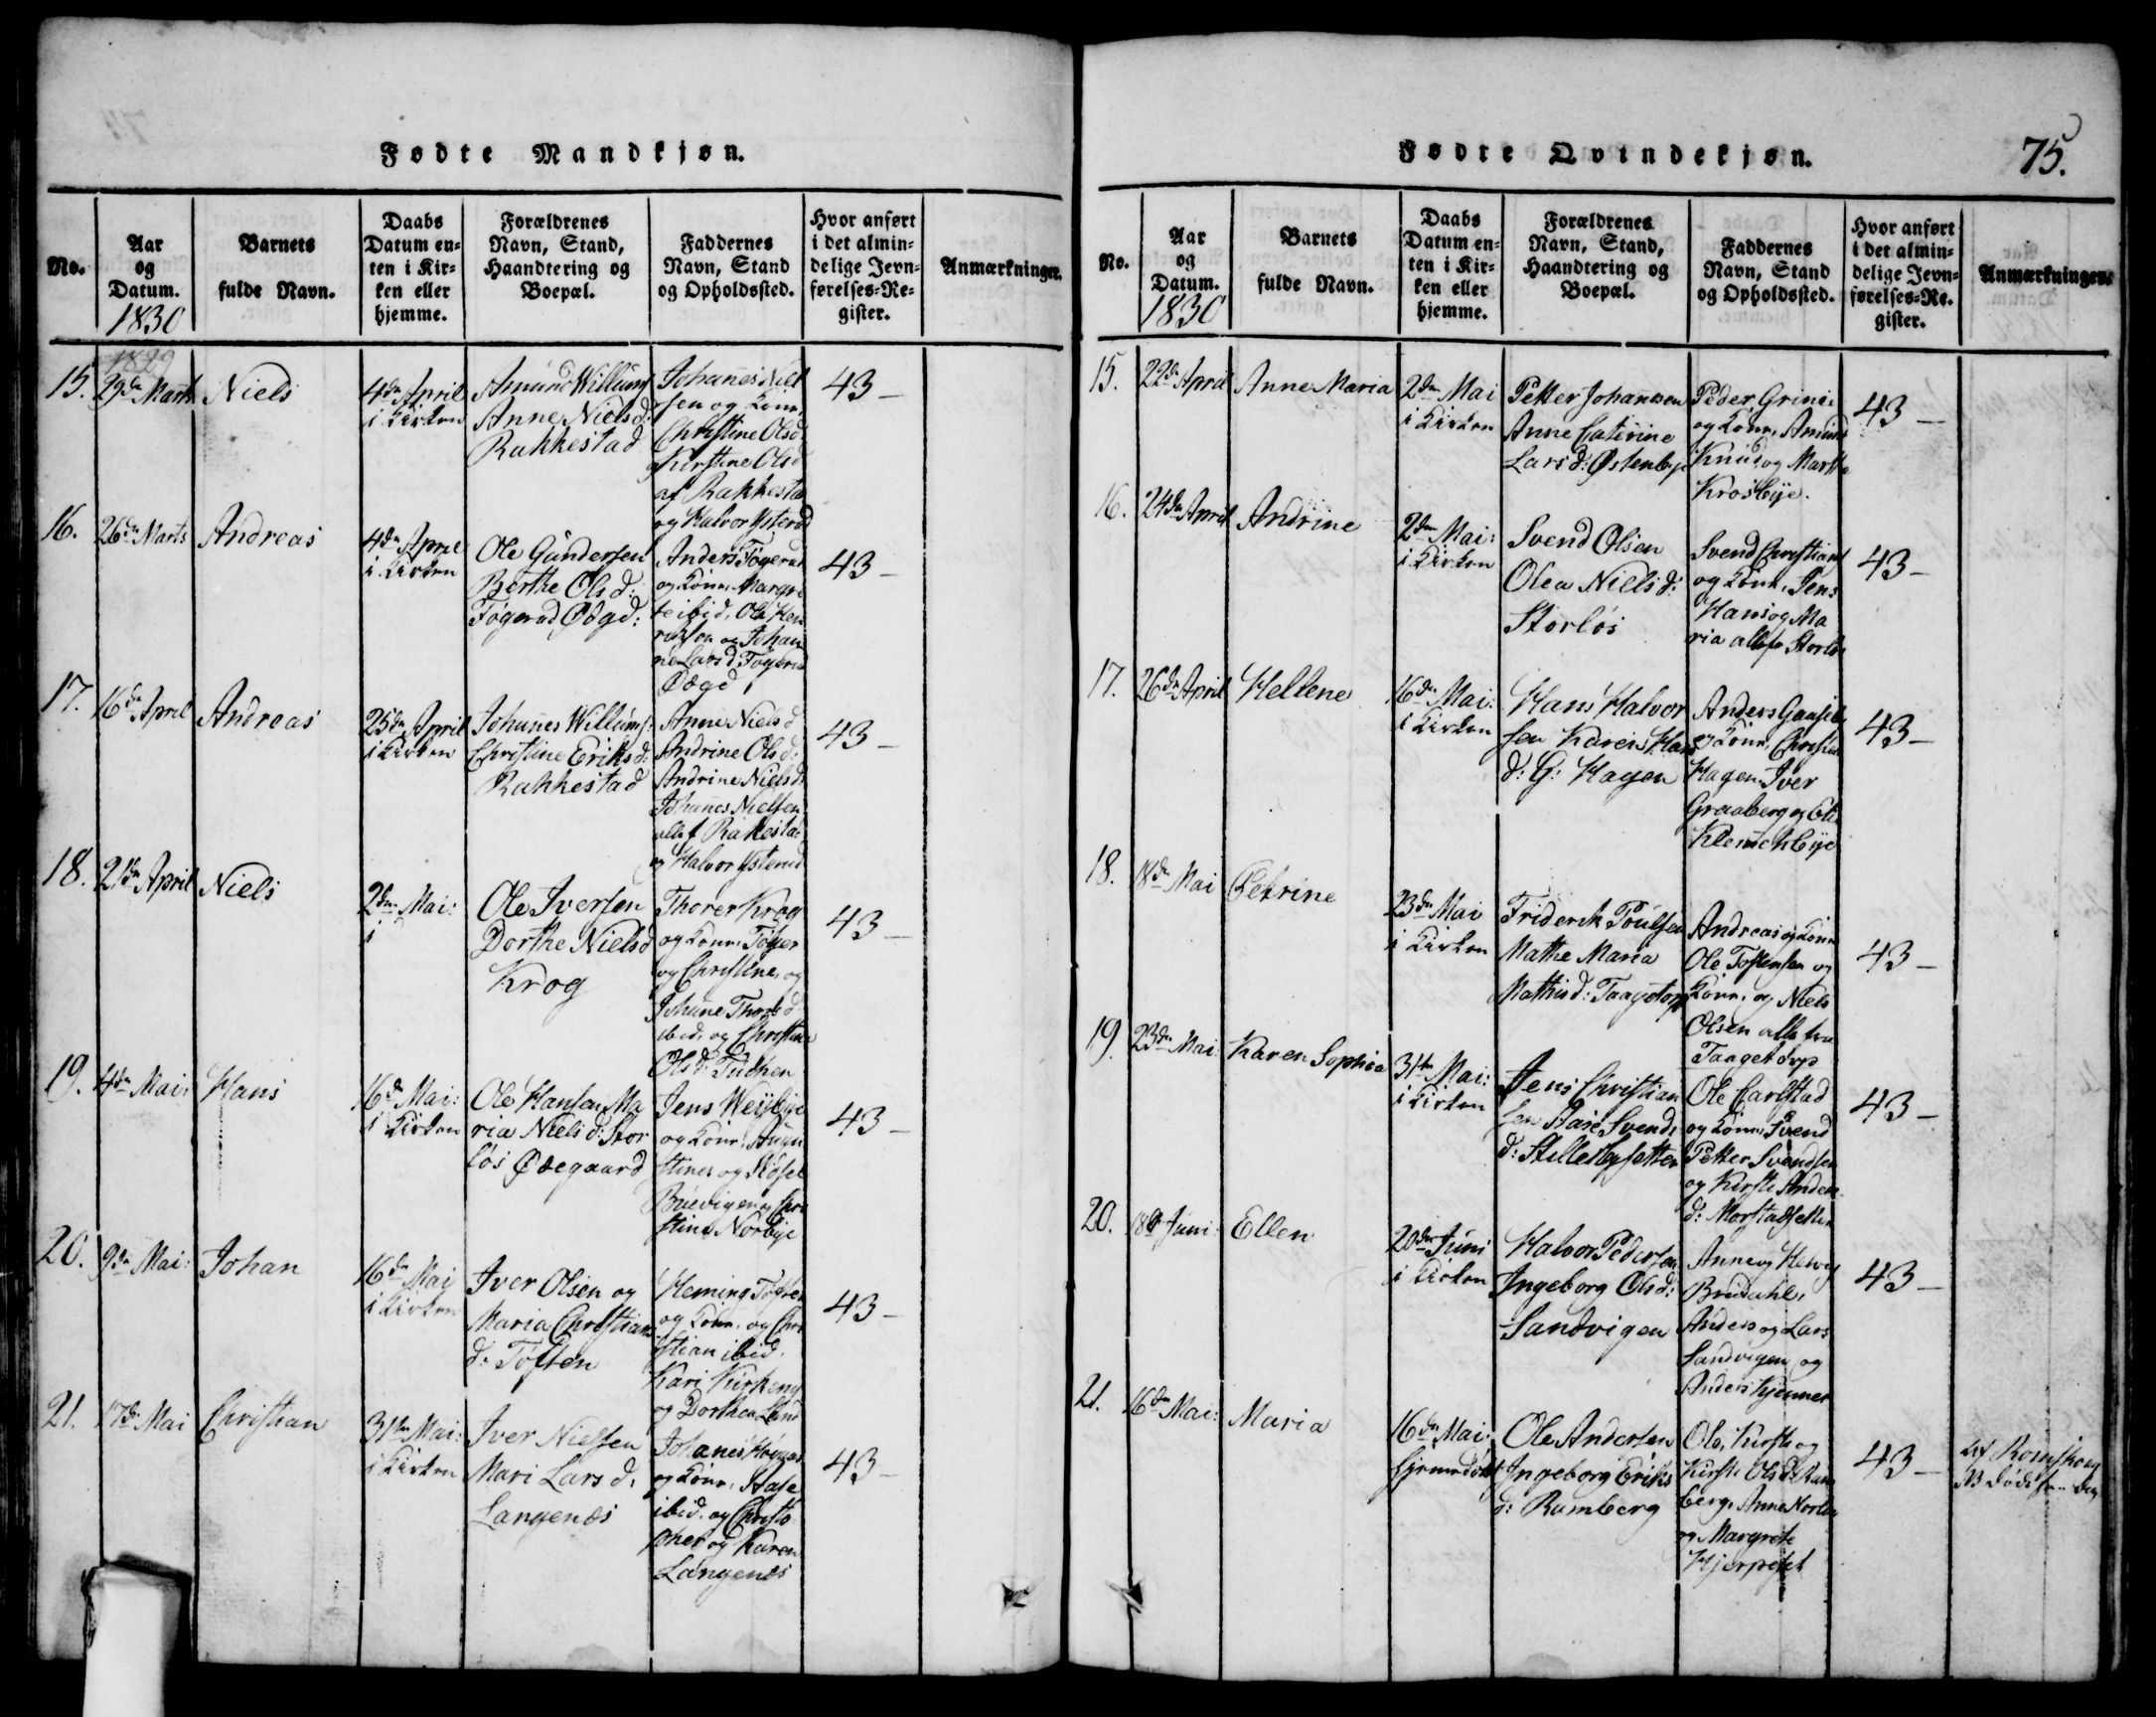 Fødte Mandkjøn.
No.
Aar
og
Datum.
1830
Barnets
fulde Navn.
Daabs
Datum en-
ten i Kir-
ken eller
hjemme.
Forældrenes
Navn, Stand,
Haandtering og
Boepæl.
Faddernes
Navn, Stand
og Opholdssted.
Hvor anført
i det almin-
delige Jevn-
førelses-Re-
gister.
Anmærkninger.
1829
15. 29de Marts
Niels
4de April
i Kirken
Amund Willums
Anne Nielsd:
Rakkestad
Johanes Niel
sen og Kone,
Christine Olsd.
Kirstine Olsd
af Rakkesta
og Halvor Ysterud
43 –
16. 26de Marts
Andreas
4de April
i Kirken
Ole Gundersen
Berthe Olsd:
Togerud Ødgd:
Anders Togerud
og Kone, Margre
te ibid, Ole Hen
riksen og Johan
ne Larsd Togerud
Ødgd
43 –
17. 16de April
Andreas
25de April
i Kirken
Johanes Willums:
Christine Eriksd:
Rakkestad
Anne Nielsd
Andrine Olsd:
Andrine Nielsd.
Johanes Nielsen
alle f Rakesta
og Halvor Ysterud
43 –
18. 21de April
Niels
2den Mai:
i
Ole Iversen
Dorthe Nielsd
Krog
Thorer Krog
og Kone,
og Christine, og
Johane Thorsd
ibid, og Christine
Olsd:
43 –
19. 4de Mai:
Hans
16de Mai:
i Kirken
Ole Hansen Ma
ria Nielsd: Stor
løs Ødegaard
Jens Weybye
og Kone,
stines og
og Chri
stine Norbye
43 –
20. 9de Mai:
Johan
16de Mai
i Kirken
Iver Olsen og
Maria Christians
d: Tosten
Heming Tosten
og Kone, og Chri
stian ibid.
Kari Kirkeng
og Dorthea Lund
43 –
21. 17de Mai
Christian
31te Mai:
i Kirken
Iver Nielsen
Mari Larsd.
Langenes
Johanes
og Kone, Aase
ibid. og Christo
pher og Karen
Langenes
43 –
Fødte Qvindekjøn.
75.
No.
Aar
og
Datum.
1830
Barnets
fulde Navn.
Daabs
Datum en-
ten i Kir-
ken eller
hjemme.
Forældrenes
Navn, Stand,
Haandtering og
Boepæl.
Faddernes
Navn, Stand
og Opholdssted.
Hvor anført
i det almin-
delige Jevn-
førelses-Re.
gister.
Anmærkninger.
15. 22de April
Anne Maria
2den Mai
i Kirken
Petter Johannsen
Anne Catirine
Larsd: Østenbye
Peder Grini
og Kone, Amund
Knud og Marthe
Krosbye.
43 –
16. 24de April
Andrine
2den Mai:
i Kirken
Svend Olsen
Olea Nielsd:
Storløs
Svend Christians
og Kone, Jens
Hans og Ma
ria alle fr Storløs
43 –
17. 26de April
Hellene
16de Mai:
i Kirken
Hans Halvor
sen Karen Hans
d: G: Hagen
Anders Gaaseby
og Kone, Christian
Hagen, Iver
Graaberg og Ole
Klemetsbye
43 –
18. 18de Mai
Petrine
23de Mai
i Kirken
Friderik Poulsen
Mathe Maria
Mathisd: Taagetorp
Andreas og Kone
Ole Tostensen og
Kone, og Niels
Olsen alle fra
Taagetorp
43 –
19. 23de Mai:
Karen Sophia
31te Mai:
i Kirken
Jens Christian
sen Aase Svends
d: Stillebysetter
Ole Carlstad
og Kone, Svend
Petter Svendsen
og Kirste Anders
d: Morstadsetter
43 –
20. 18de Juni:
Ellen
20de Juni
i Kirken
Halvor Pedersen
Ingeborg Olsd:
Sandvigen
Anne og Helvig
Brudahl,
Anders og Lars
Sandvigen og
Anders
43 –
21. 16de Mai:
Maria
16de Mai:
hjemmedøbt
Ole Andersen
Ingeborg Eriks
d: Ramberg
Ole, Kirste og
Kirsti Olsd: Ram
berg, Anne Norbye
og Margrete
43 –
af Romskoug